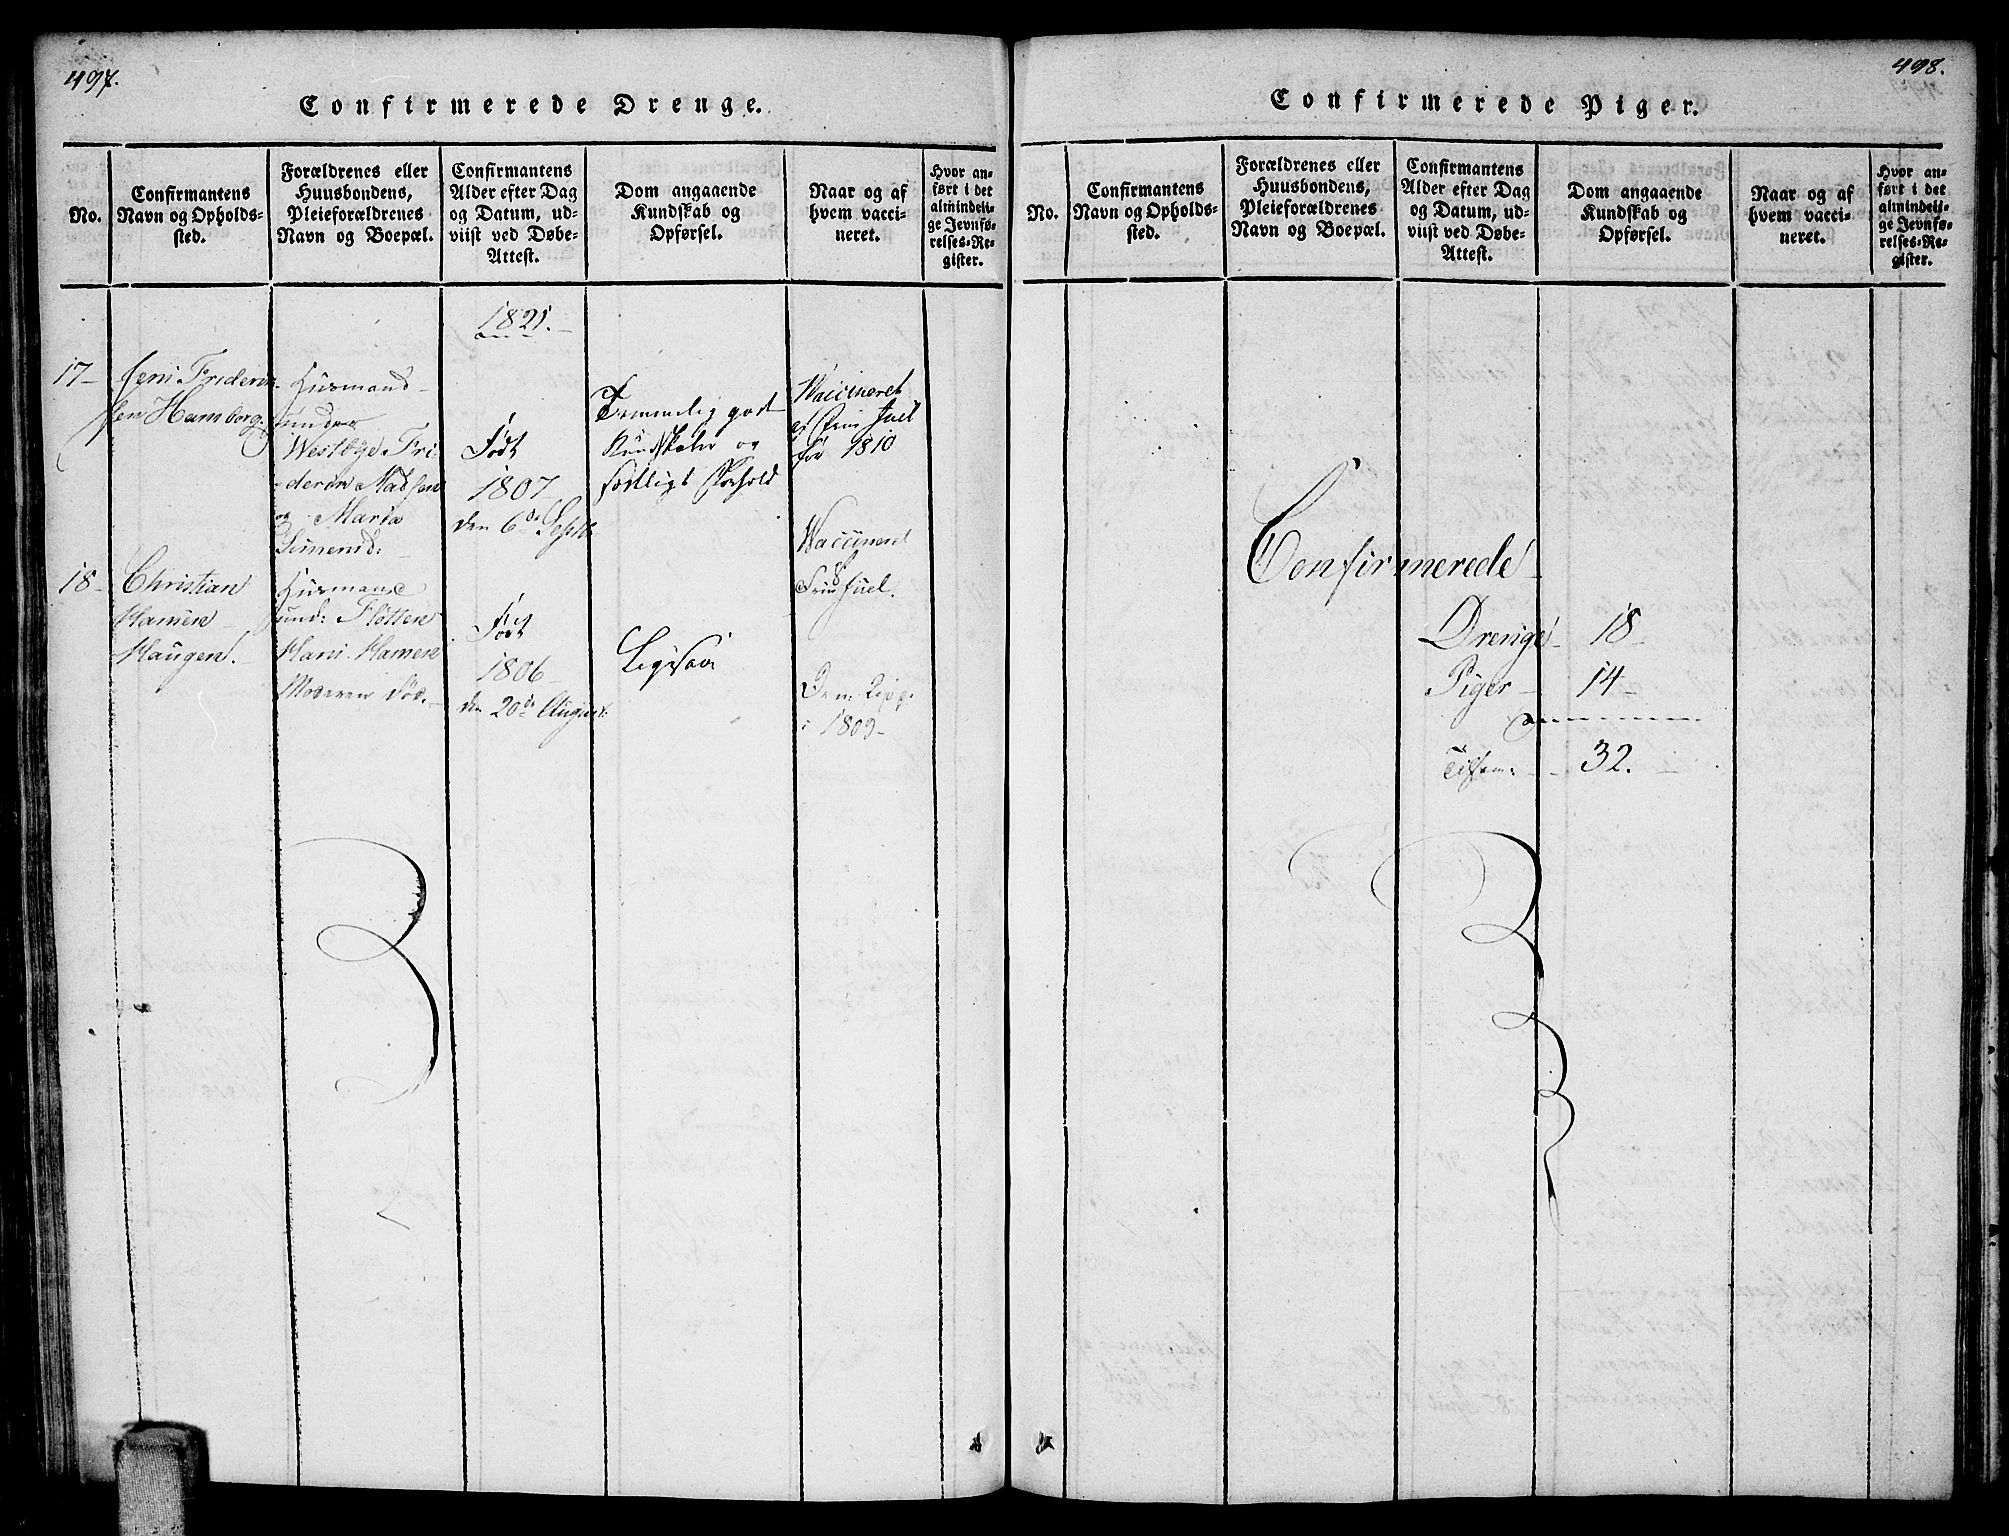 497.
Confirmerede Drenge.
No.
Confirmantens
Navn og Opholds-
sted.
Forældrenes eller
Huusbondens,
Pleieforældrenes
Navn og Boepæl.
Confirmantens
Alder efter Dag
og Datum, ud-
viist ved Døbe-
Attest.
Dom angaaende
Kundskab og
Opførsel.
Naar og af
hvem vacci-
neret.
Hvor an-
ført i det
almindeli-
ge Jevnfø-
relses-Re-
gister.
1821.
17-
Jens Frideric-
sen Hamborg.
Husmand
under
Westbye Fri
dericn Madsen
og Maria
Simensd:
Født
1807
den 6de Septb.
Temmelig god
Kundskaber og
sædligt Forhold
Vaccineret
af Juel
før 1810
18-
Christian
Hansen
Haugen.
Husmand
und: Fløtten
Hans Hansen
Moderen død.
Født
1806
den 20de August.
Ligesaa
Vaccineret
Juel.
i 1809-
498.
Confirmerede Piger.
No.
Confirmantens
Navn og Opholds-
sted.
Forældrenes eller
Huusbondens,
Pleieforældrenes
Navn og Boepæl.
Confirmantens
Alder efter Dag
og Datum, ud-
viist ved Døbe-
Attest.
Dom angaaende
Kundskab og
Opførsel.
Naar og af
hvem vacci-
neret.
Hvor an-
ført i det
almindeli-
ge Jevnfø-
relses-Re-
gister.
Confirmerede
Drenge - 18-
Piger - 14-
Tilsam: - 32.